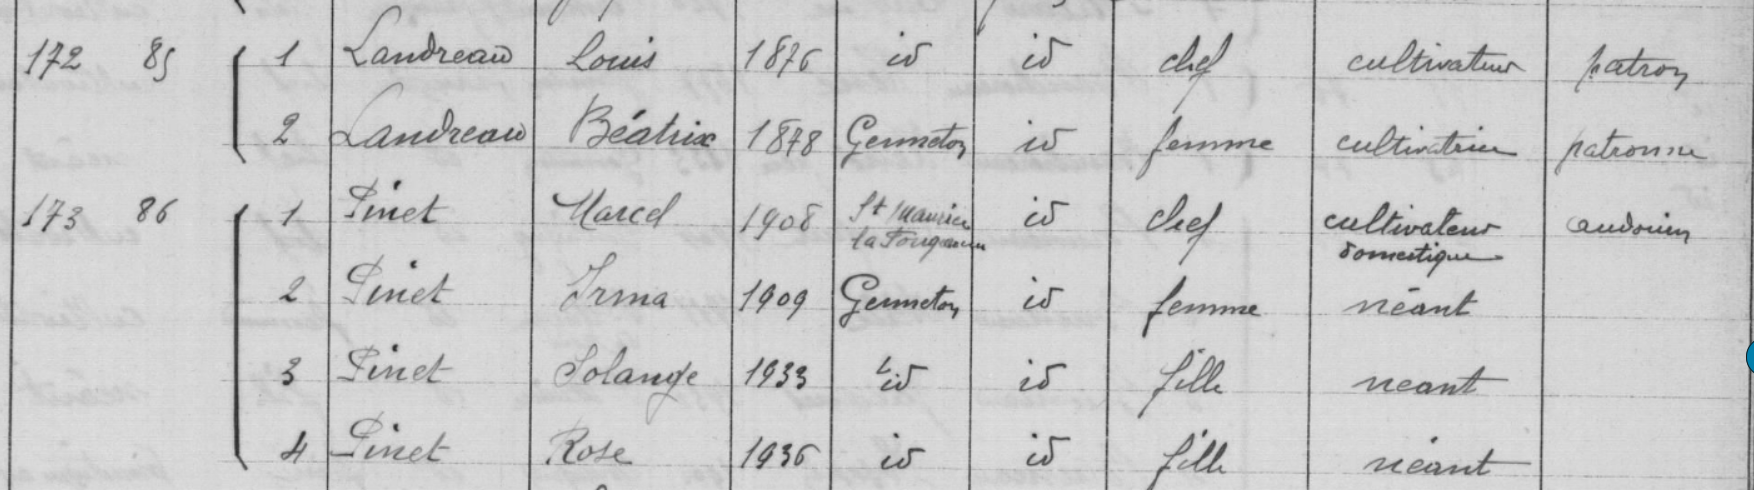 172 85 1 Landreau Louis 1876 id id chef cultivateur patron
2 Landreau Béatrix 1878 Genneton id femme cultivatrice patronne
173 86 1 Pinet Marcel 1908 St Maurice la Fougereuse id chef cultivateur domestique audouin
2 Pinet Irma 1909 Genneton id femme néant
3 Pinet Solange 1933 id id fille néant
4 Pinet Rose 1936 id id fille néant